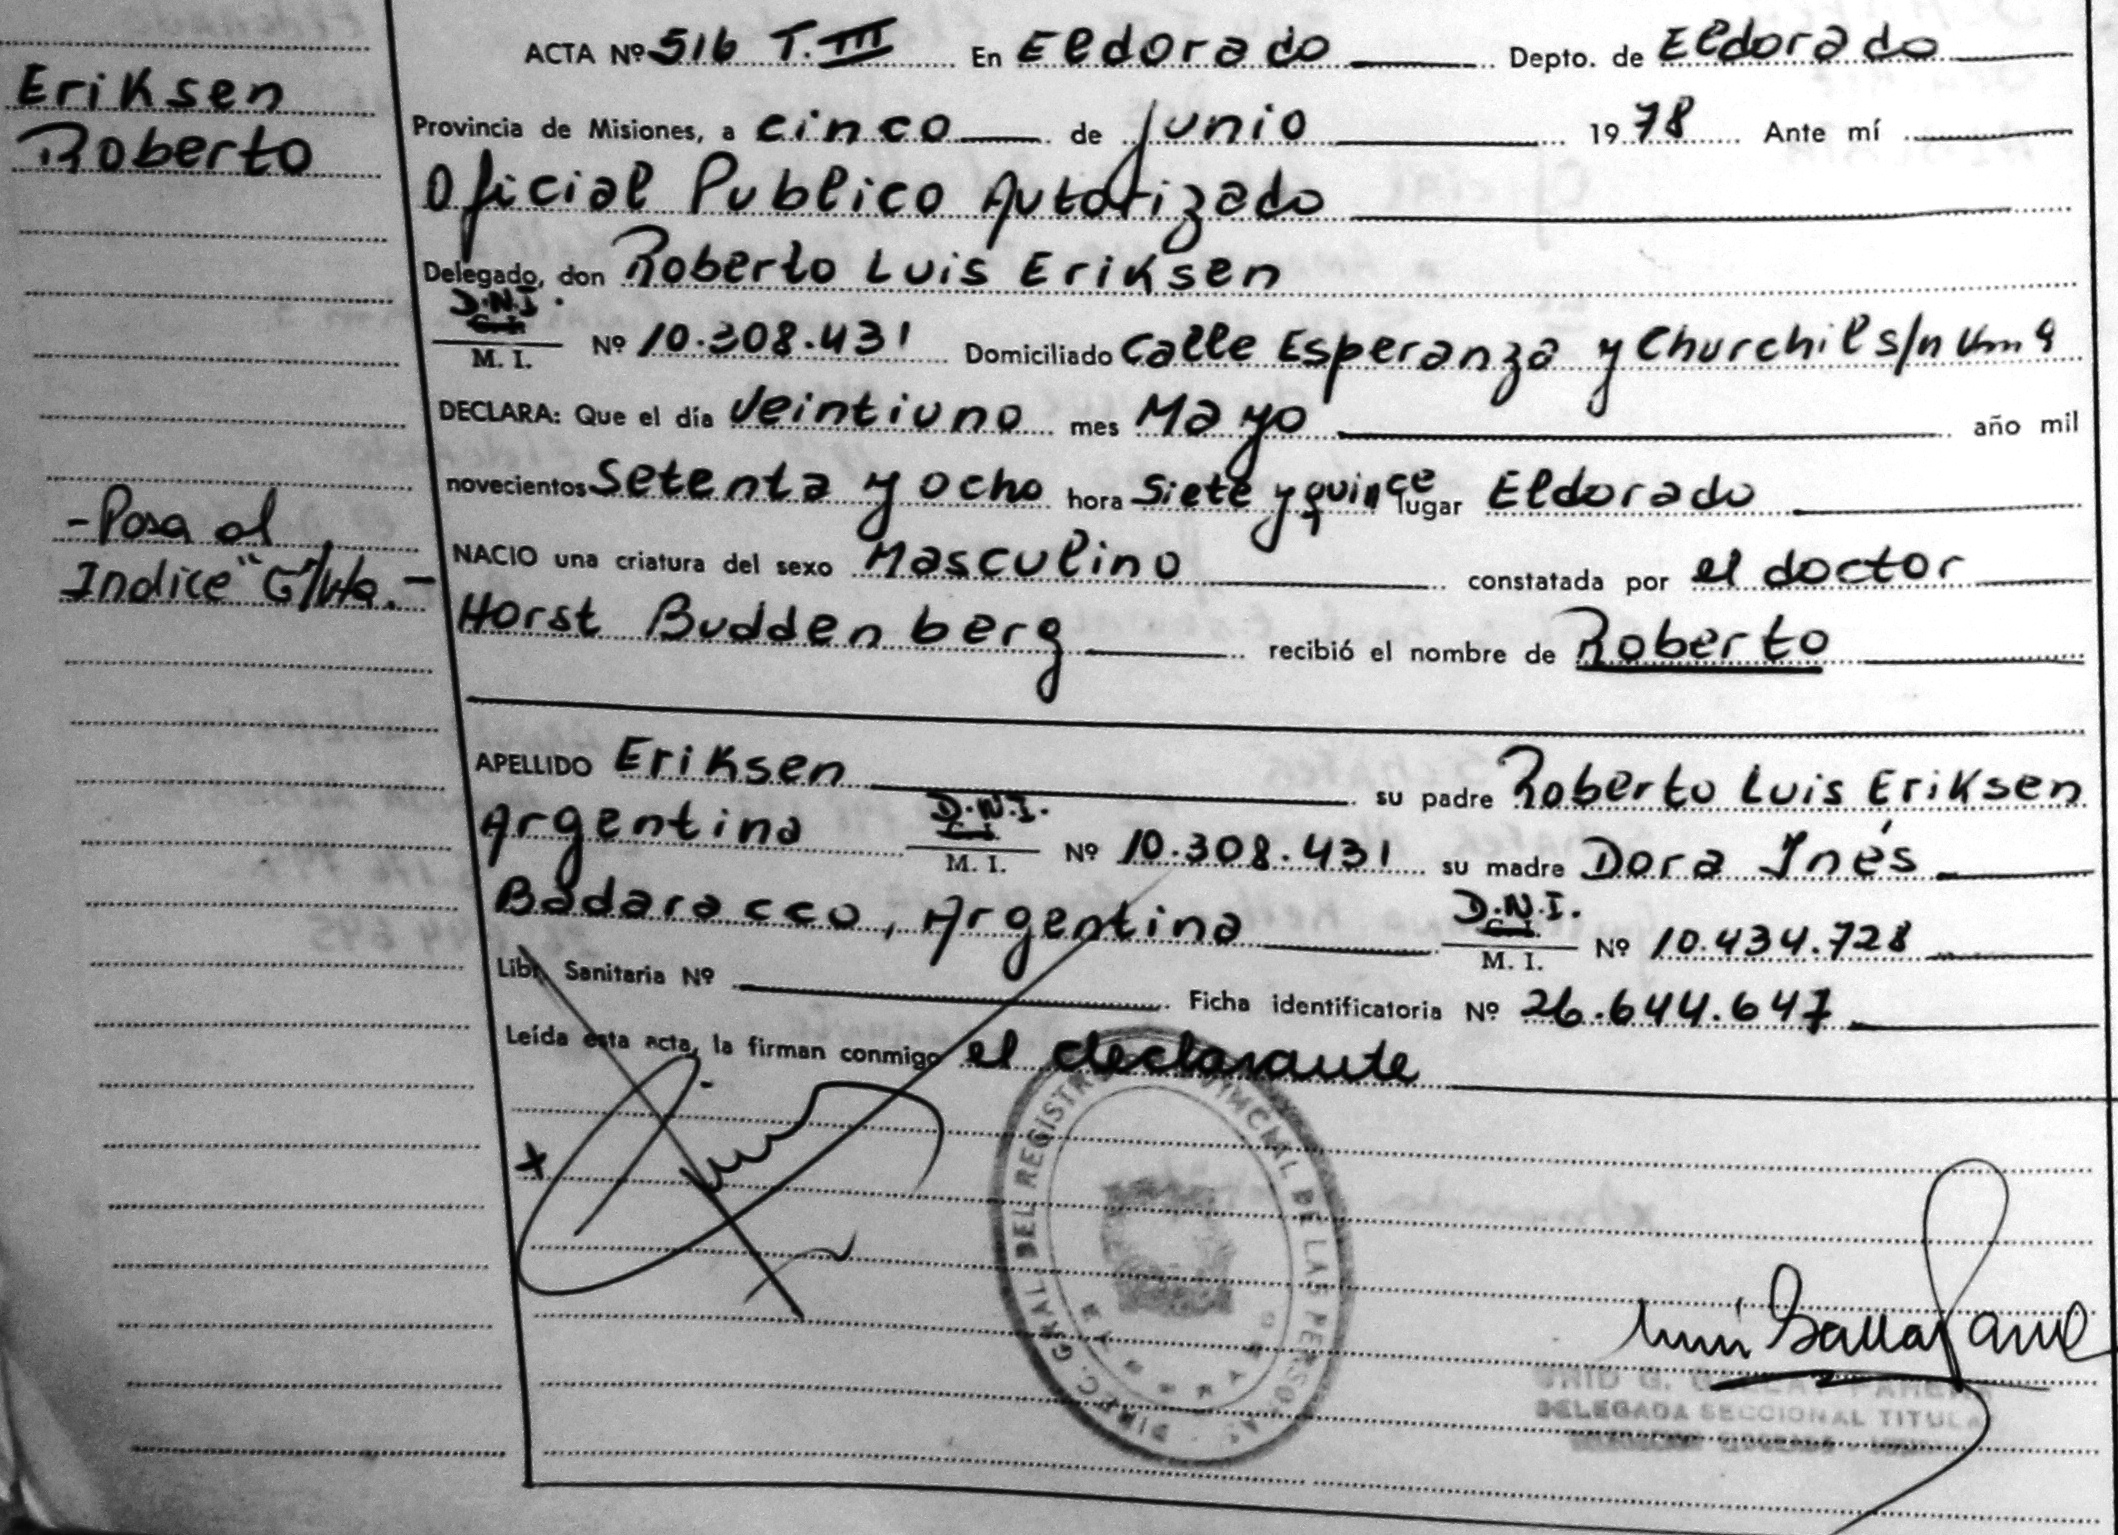 Eriksen
Roberto
-Pasa al
Indice "G"/Vta.-
ACTA Nº 516 T. III En Eldorado Depto. de Eldorado
Provincia de Misiones, a cinco de Junio 1978 Ante mí
Oficial Publico Autorizado
Delegado, don Roberto Luis Eriksen
D.N.I. M. I. Nº 10.308.431 Domiciliado Calle Esperanza y Churchil s/n Km 9
DECLARA: Que el día veintiuno mes Mayo año mil
novecientos setenta y ocho hora siete y quince lugar Eldorado
NACIO una criatura del sexo Masculino constatada por el doctor
Horst Buddenberg recibió el nombre de Roberto
APELLIDO Eriksen su padre Roberto Luis Eriksen
Argentino D.N.I. M. I. Nº 10.308.431 su madre Dora Inés
Badaracco, Argentina D.N.I. C.I. M. I. Nº 10.434.728
Libr. Sanitaria Nº Ficha identificatoria Nº 26.644.647
Leída esta acta, la firman conmigo el declarante
DIREC. GRAL DEL REGISTRO PROVINCIAL DE LAS PERSONAS
DELEGADA SECCIONAL TITULAR